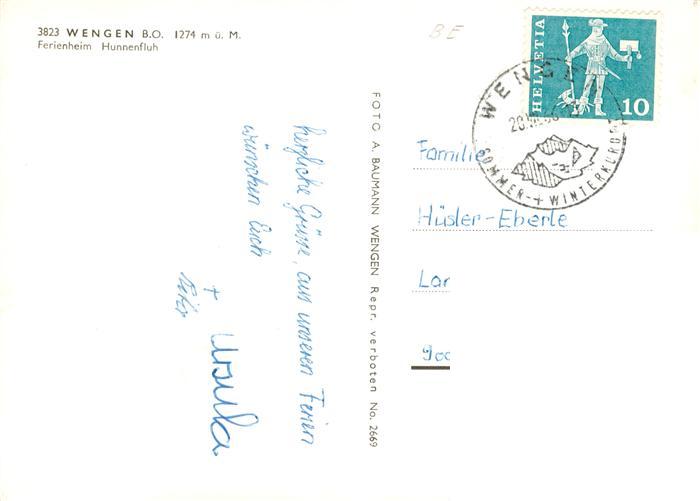 3823 WENGEN B.O. 1274 m ü. M.
Ferienheim Hunnenfluh
BE
HELVETIA
10
WENGEN
SOMMER- + WINTERKURORT
FOTO A. BAUMANN WENGEN Repr. verboten No. 2669
herzliche Grüsse, aus unseren Ferien
wünschen Euch
+ Ursula
Familie
Hüsler-Eberle
Lar
900